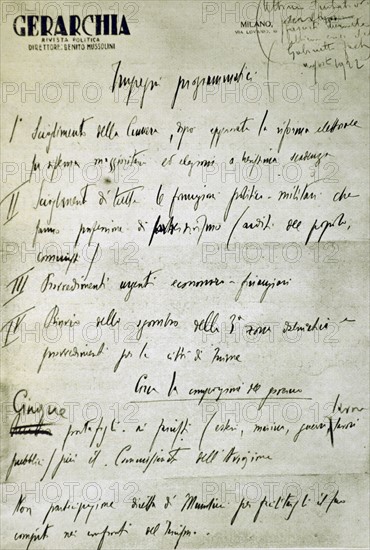 GERARCHIA
RIVISTA POLITICA
DIRETTORE: BENITO MUSSOLINI
MILANO,
1922
Impegni programmatici
I° Scioglimento della Camera, dopo approvata la riforma elettorale
in sistema maggioritario ed elezioni a brevissima scadenza
II Scioglimento di tutte le formazioni politico-militari che
fanno professione di (arditi del popolo,
comunisti)
III Provvedimenti urgenti economico-finanziari
IV Rinvio dello sgombro della 3ª zona dalmatica e
provvedimenti per la città di Fiume
Circa la composizione del governo
Cinque portafogli ai fascisti (esteri, marina, guerra, lavoro
lavori
pubblici) più il Commissariato dell'Aviazione
Non partecipazione diretta di Mussolini per facilitargli il suo
compito nei confronti del fascismo.